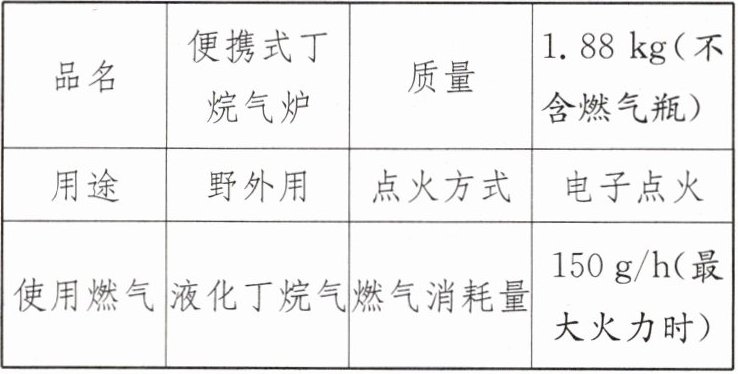 品名
便携式丁
烷气炉
质量
1.88 kg(不
含燃气瓶)
用途
野外用
点火方式
电子点火
使用燃气
液化丁烷气
燃气消耗量
150 g/h(最
大火力时)